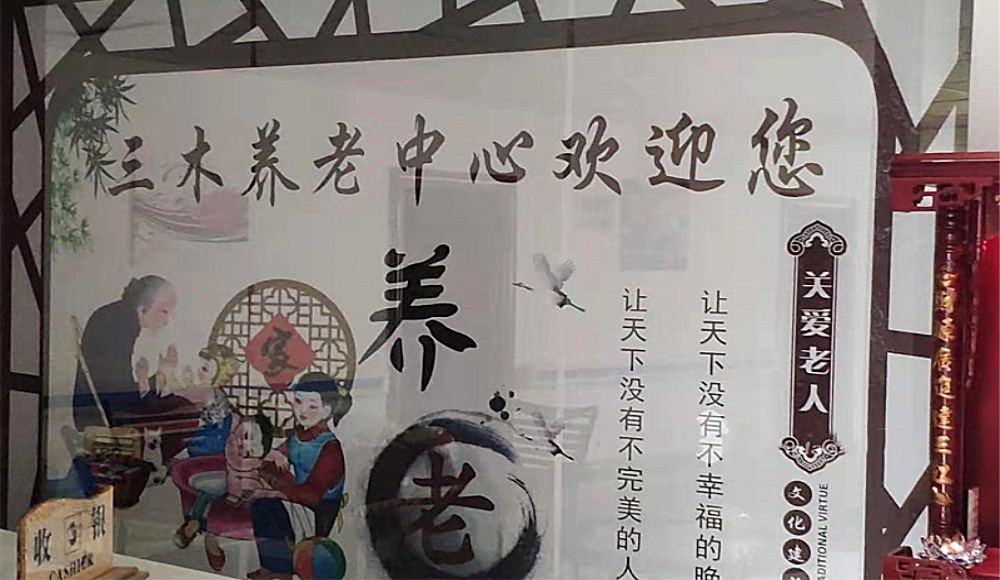 三木养老中心欢迎您
养
老
家
关爱老人
让天下没有不幸福的晚
让天下没有不完美的人
文化建
DITIONAL VIRTUE
收银
CASHIER